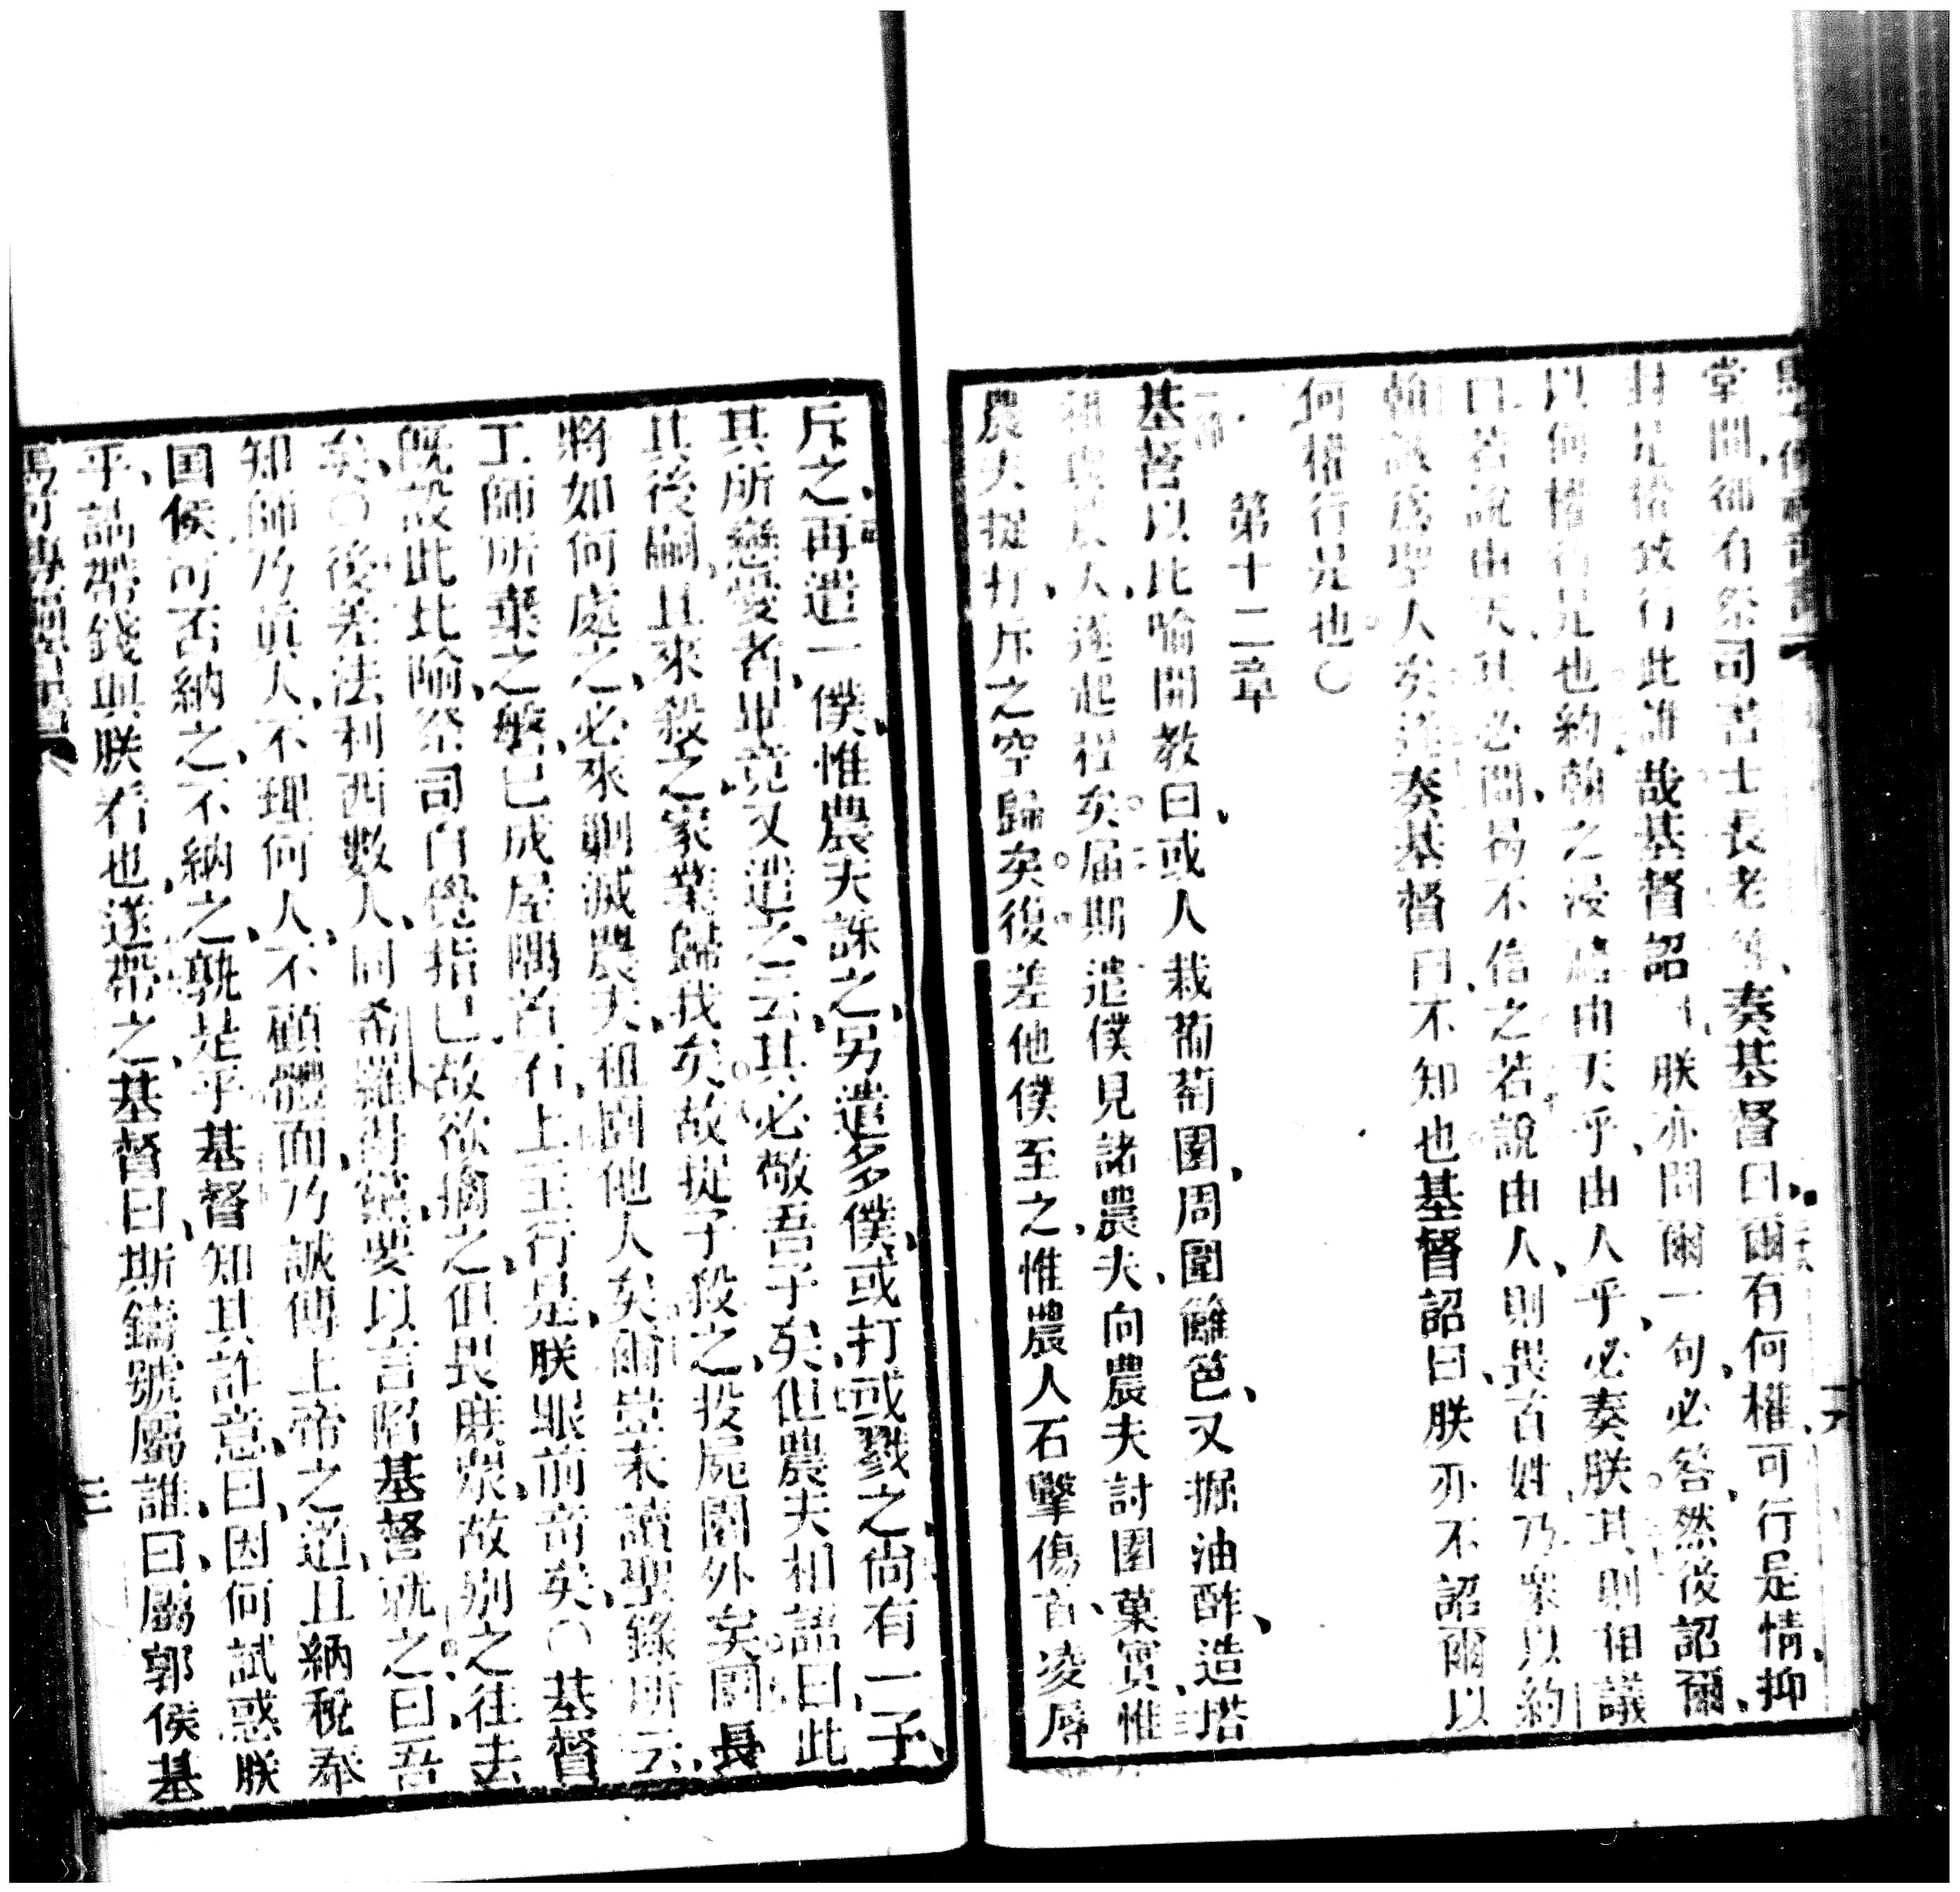 堂間都有祭司書士長老等奏基督曰爾有何權可行是情抑
是權致行此誰哉基督詔曰朕亦問爾一句必答然後詔爾
以何權行是也約翰之浸禮由天乎由人乎必奏朕其則相議
曰若說由天其必問曷不信之若說由人則畏百姓乃眾以約
翰誠為聖人矣遂奏基督曰不知也基督詔曰朕亦不詔爾以
何權行是也〇
第十二章
基督以比喻開教曰或人栽葡萄園周圍籬笆又掘油醡造塔
租與農人遂起程矣屆期遣僕見諸農夫向農夫討園菓實惟
農夫捉打斥之空歸矣復差他僕至之惟農人石擊傷首凌辱
斥之再遣一僕惟農夫誅之另遣多僕或打或戮之尚有一子
其所戀愛者畢竟又遣之云其必敬吾子矣但農夫相語曰此
其後嗣且來殺之家業歸我矣故捉子殺之投屍園外矣園長
將如何處之必來剿滅農夫租園他人矣爾豈未讀聖錄所云
工師所棄之磐已成屋隅首石上主行是朕眼前奇矣〇基督
既設此比喻祭司自覺指己故欲擒之但畏庶眾故別之往去
矣〇後差法利西數人同希羅得黨要以言陷基督就之曰吾
知師乃真人不理何人不顧體面乃誠傳上帝之道且納稅奉
国侯可否納之不納之孰是乎基督知其詐意曰因何試惑朕
乎請帶錢與朕看也遂帶之基督曰斯鑄號屬誰曰屬郭侯基
馬可傳福音書
三